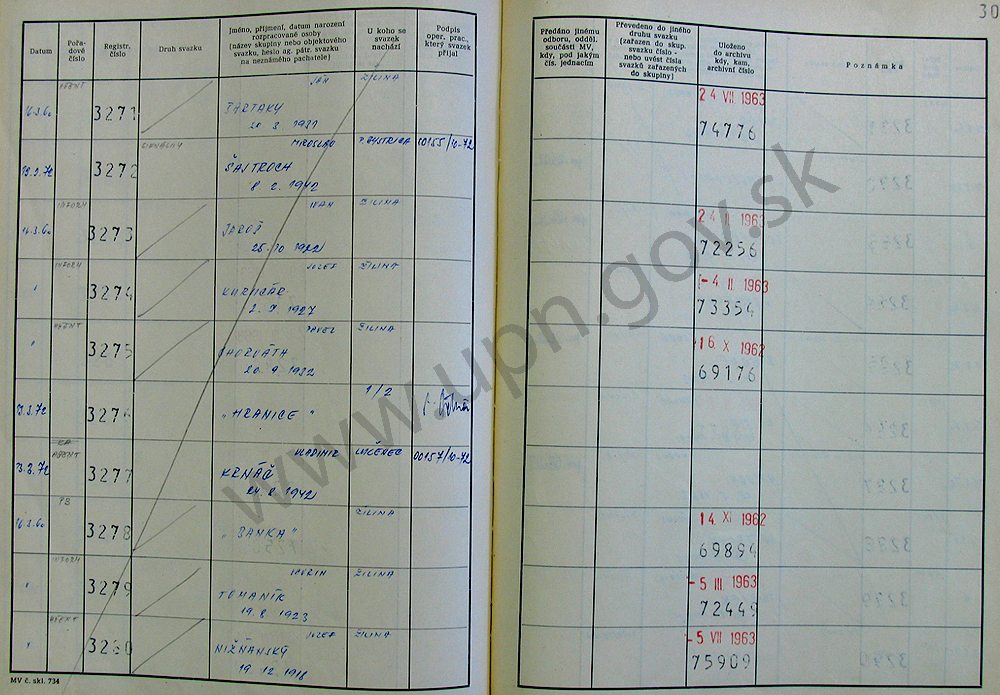 30
Datum
Pořa-
dové
číslo
Registr.
číslo
Druh svazku
Jméno, příjmení, datum narození
rozpracované osoby
(název skupiny nebo objektového
svazku, heslo ag. pátr. svazku
na neznámého pachatele)
U koho se
svazek
nachází
Podpis
oper. prac.,
který svazek
přijal
Předáno jinému
odboru, odděl.
součásti MV,
kdy, pod jakým
čís. jednacím
Převedeno do jiného
druhu svazku
(zařazen do skup.
svazku číslo -
nebo uvést čísla
svazků zařazených
do skupiny)
Uloženo
do archivu
kdy, kam,
archivní číslo
Poznámka
AGENT JÁN ŽILINA
16.3.60 3271 24 VII 1963
20 3 1931 74776
MIROSLAV P. BYSTRICA 00155/10-72
13.3.72 3272 ŠAJTROCH
8 2. 1942
INFORM IVAN ŽILINA
16.3.60 3273 JAROŠ 24 II 1963
25 10 1922 72256
INFORM JOZEF ŽILINA
" 3274 - 4 II. 1963
2. 7 1927 73354
AGENT PAVEL ŽILINA
" 3275 HORVÁTH 16. X 1962
20. 9 1932 69176
1/2
13.3.72 3276 „HRANICE"
KA
AGENT VLADIMÍR LUČENEC 00157/10-72
13.3.72 3277 KRNÁČ
24. 2 1942
PB ŽILINA
16.3.60 3278 „BANKA" 14. XI 1962
69894
INFORM ŽILINA
" 3279 TOMANÍK - 5 III. 1963
19. 8 1923 72449
AGENT JOZEF ŽILINA
" 3280 NIŽŇANSKÝ - 5 VII 1963
19 12 1916 75909
MV č. skl. 734
www.upn.gov.sk